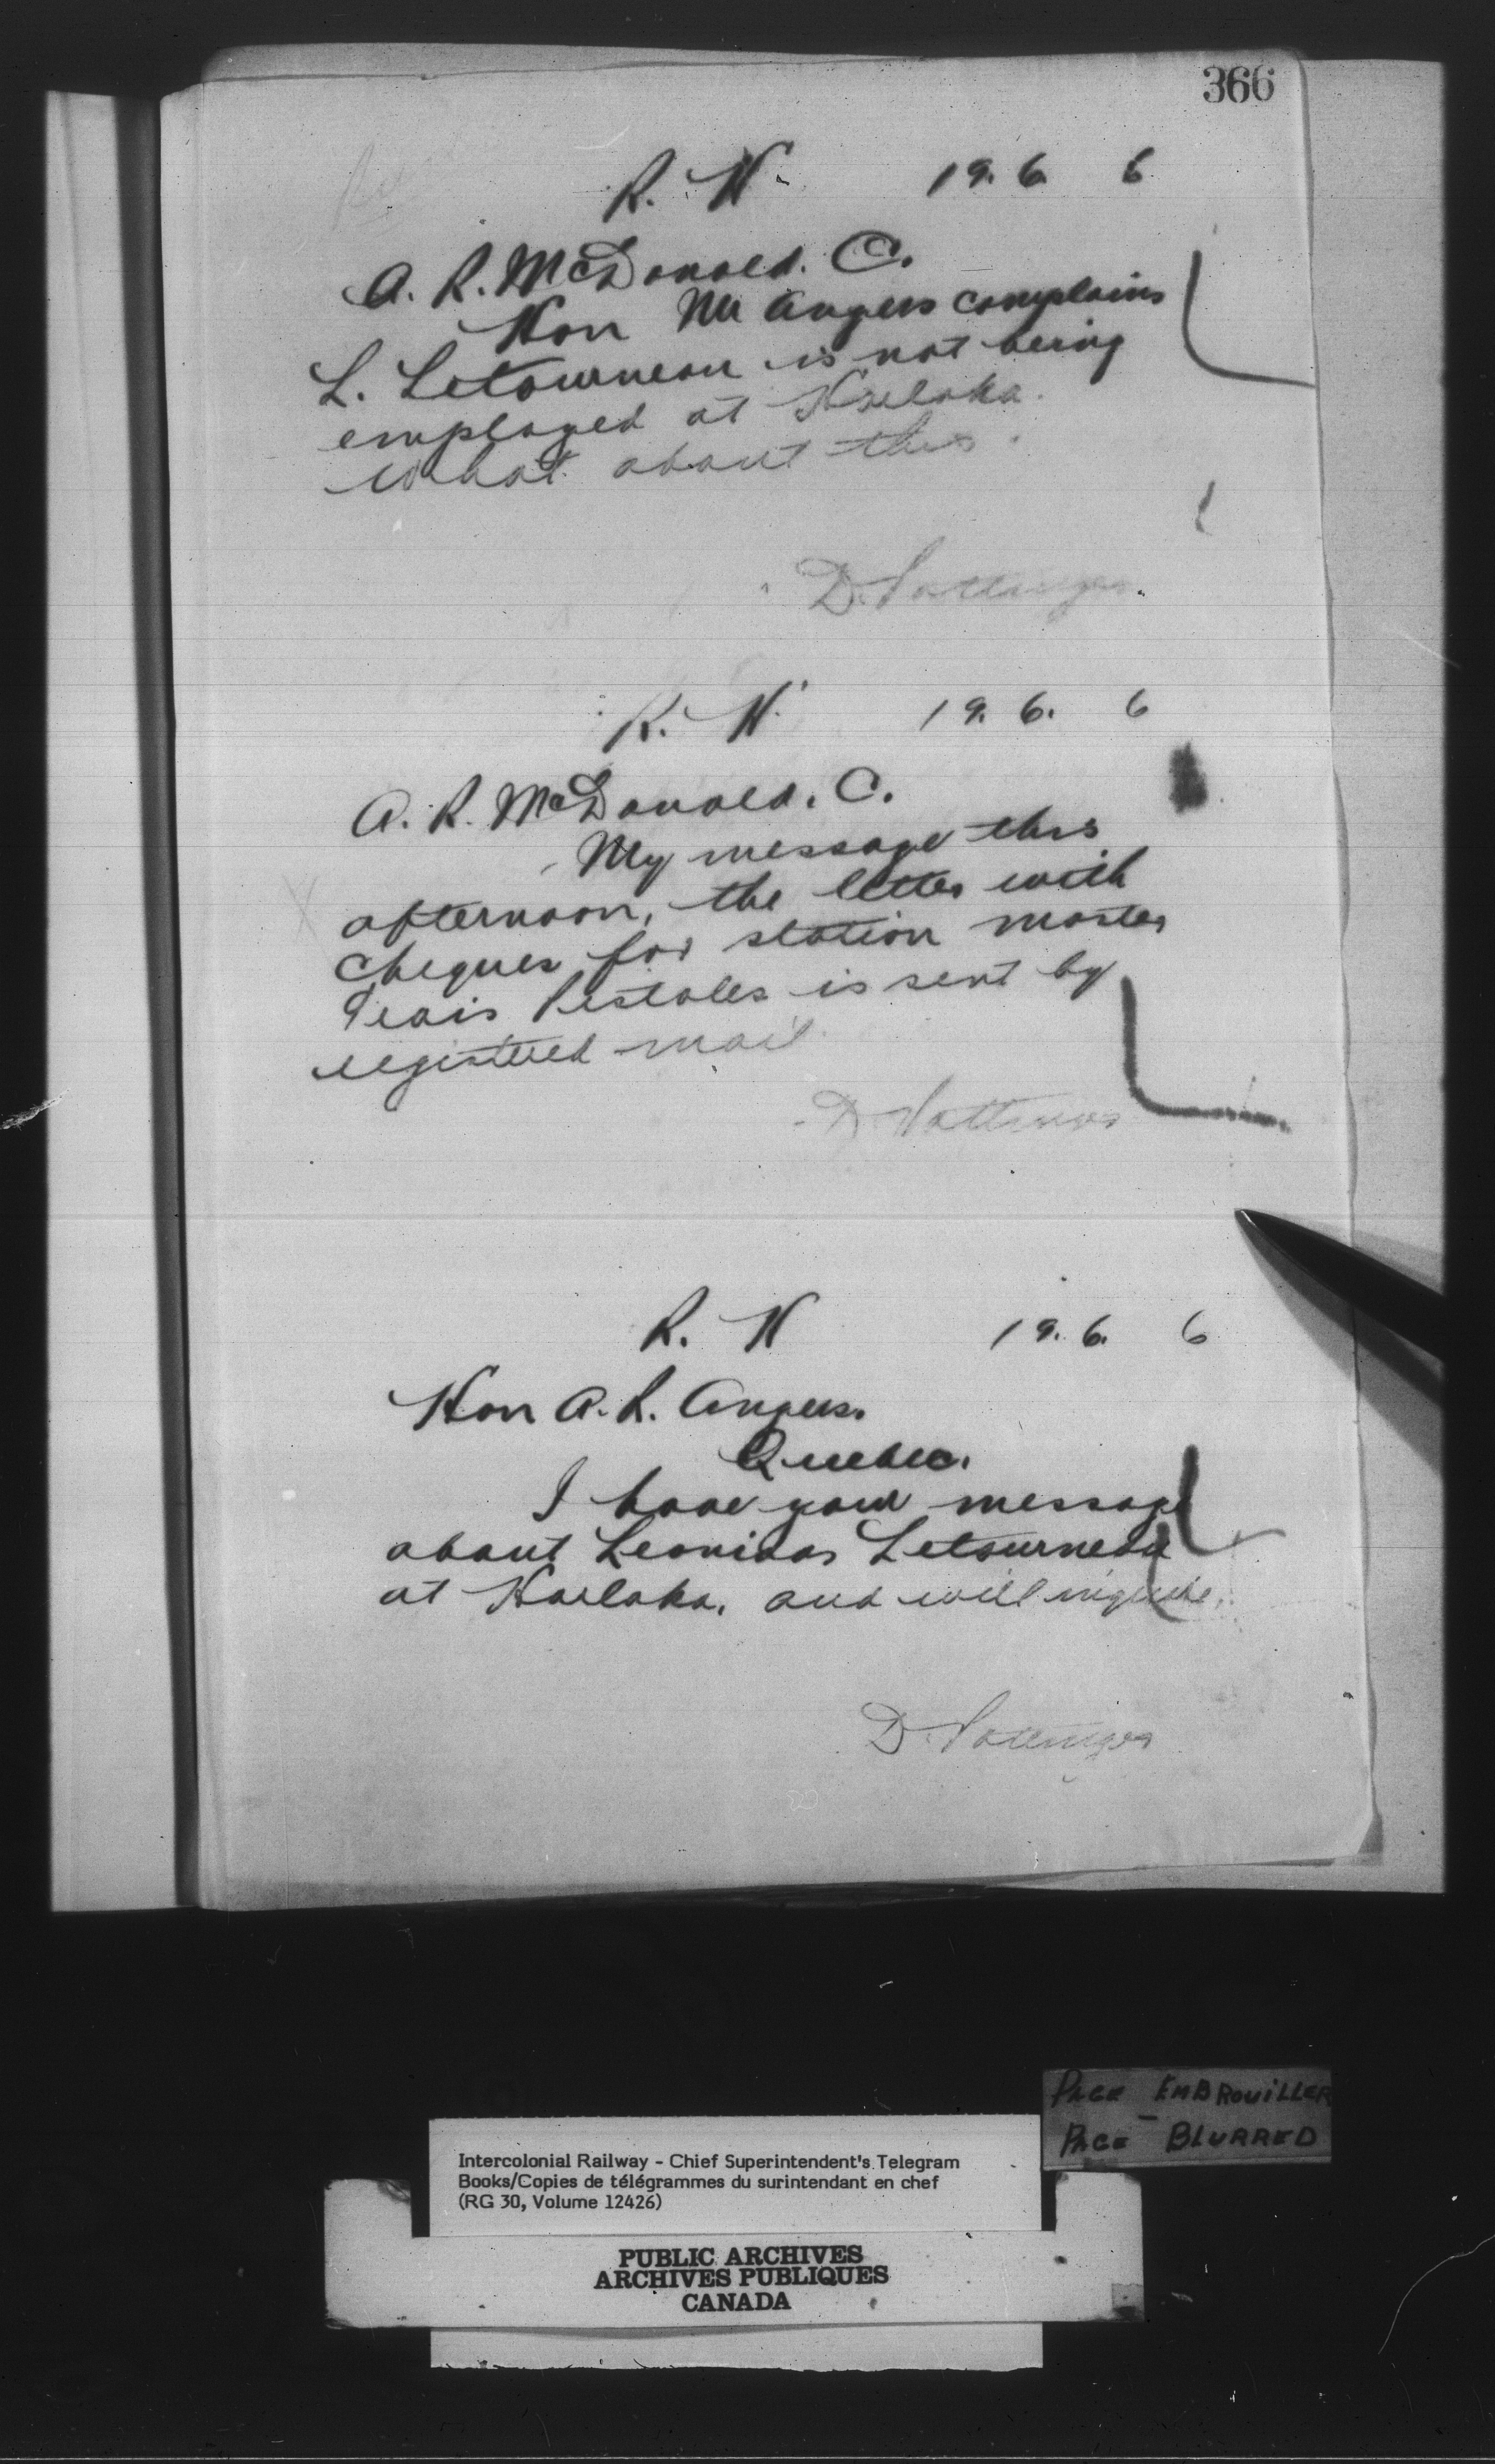 366
R. H. 19. 6. 6
A. R. McDonald. C.
Hon Mr Angers complains
L. Letourneau is not being
employed at Harlaka.
What about this.
D. Pottinger.
R. H. 19. 6. 6
A. R. McDonald. C.
My message this
afternoon, the letter with
cheques for station master
Trois Pistoles is sent by
registered mail.
D Pottinger
R. H 19. 6. 6
Hon A. R. Angers.
Quebec.
I have your message
about Leonidas Letourneau
at Harlaka, and will inquire.
D. Pottinger
PAGE EMBROUILLER
PAGE BLURRED
Intercolonial Railway - Chief Superintendent's Telegram
Books/Copies de télégrammes du surintendant en chef
(RG 30, Volume 12426)
PUBLIC ARCHIVES
ARCHIVES PUBLIQUES
CANADA